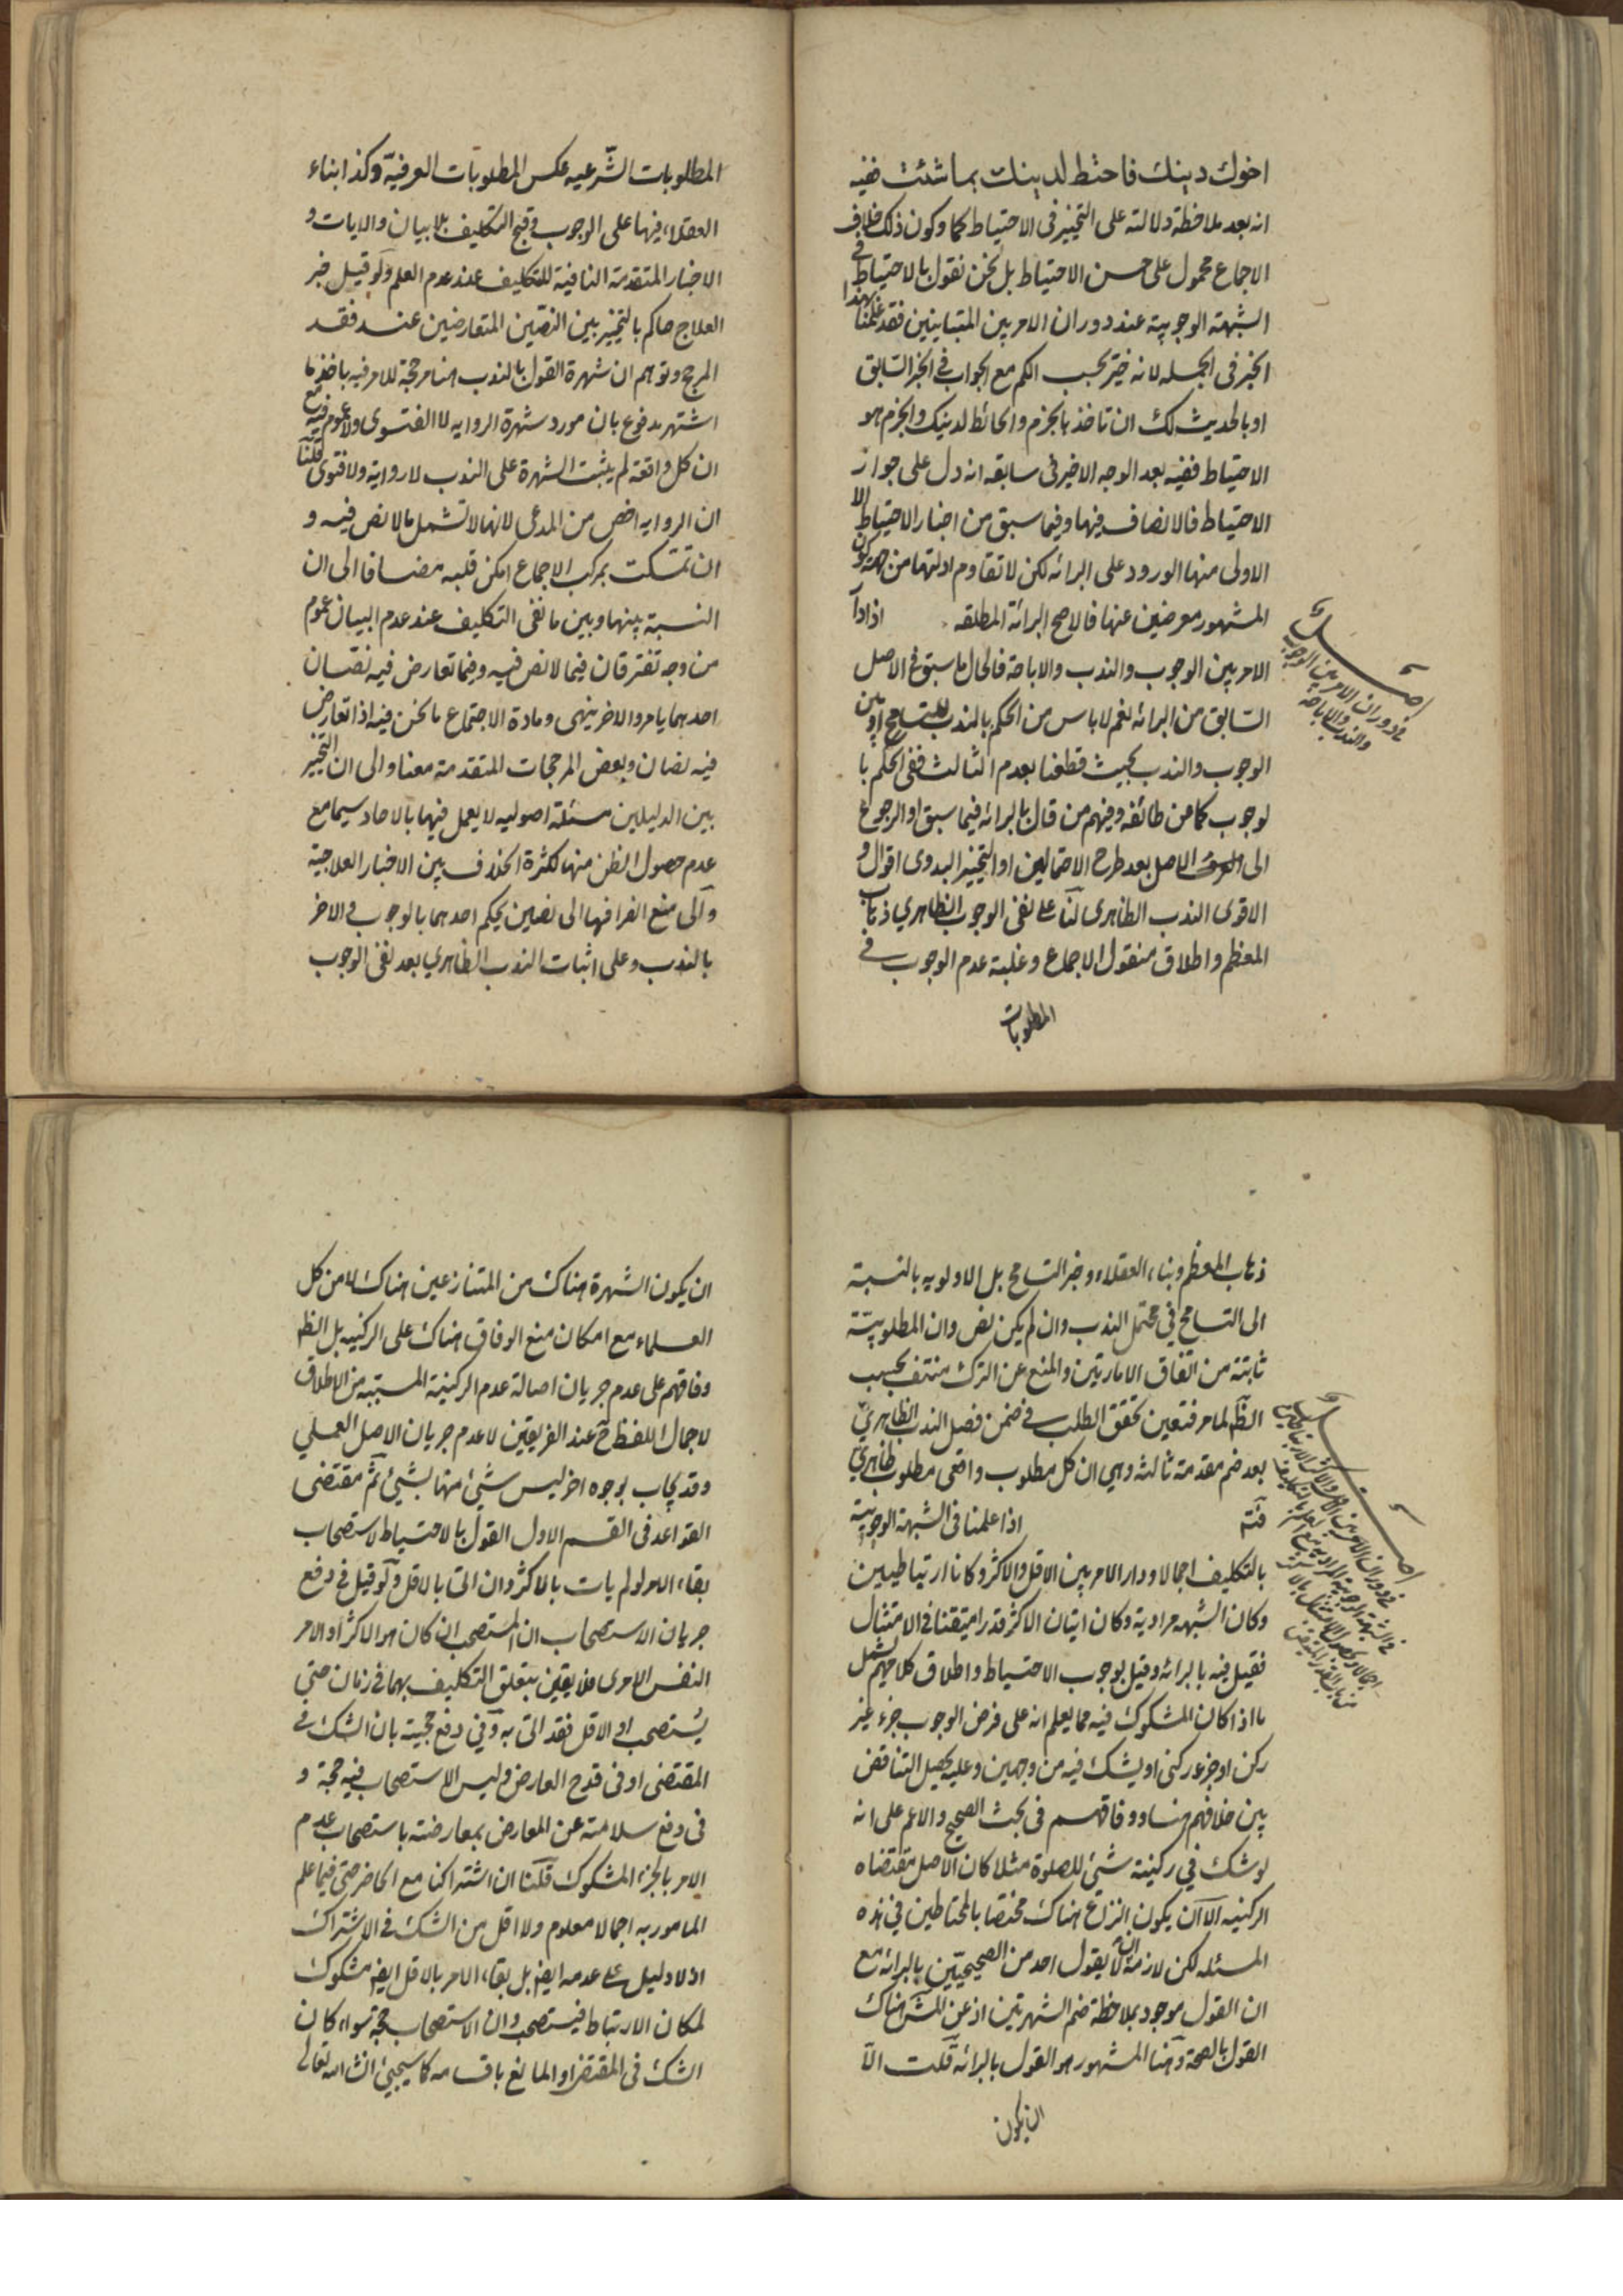 اخوك دينك فاحتط لدينك بما شئت ففيه
انه بعد ملاحظة دلالته على التخيير فى الاحتياط كما وكون ذلك خلاف
الاجماع محمول على حسن الاحتياط بل نحن نقول بالاحتياط فى
الشبهة الوجوبية عند دوران الامر بين المتباينين فقد علمنا بهذا
الخبر فى الجمله لانه خير بحسب الكم مع الجواب فى الخبر السابق
او بالحديث لك ان تاخذ بالجزم والحائط لدينك والجزم هو
الاحتياط ففيه بعد الوجه الاخير فى سابقه انه دل على جواز
الاحتياط فالانصاف فيها وفيما سبق من اخبار الاحتياط الا
الاولى منها الورود على البرائه لكن لا تقاوم ادلتها من جهة كون
المشهور معرضين عنها فالاصح البرائة المطلقه اذا دار
الامر بين الوجوب والندب والاباحة فالحال ما سبق فى الاصل
السابق من البرائه نعم لا باس من الحكم بالندب للتسامح او بين
الوجوب والندب بحيث قطعنا بعدم الثالث ففى الحكم با
لوجوب كما عن طائفه وفيهم من قال بالبرائه فيما سبق او الرجوع
الى الاصل بعد طرح الاحتمالين او التخيير البدوى اقوال و
الاقوى الندب الظاهرى لنا على نفى الوجوب الظاهري ذهاب
المعظم واطلاق منقول الاجماع وغلبة عدم الوجوب فى
المطلوبات
اصل
فى دوران الامر بين الوجوب
والندب والاباحة
المطلوبات الشّرعيه عكس المطلوبات العرفيّة وكذا بناء
العقلاء فيها على الوجوب وقبح التكليف بلا بيان والايات و
الاخبار المتقدمة النافية للتكليف عند عدم العلم ولو قيل خبر
العلاج حاكم بالتخيير بين النصّين المتعارضين عند فقد
المرجح وتوهم ان شهرة القول بالندب هنا مرجحة للامر فيه باخذ ما
اشتهر مدفوع بان مورد شهرة الرواية لا الفتوى ولا عموم فيه مع
ان كل واقعة لم يثبت الشهرة على الندب لا رواية ولا فتوى قلنا
ان الروايه اخص من المدعى لانها لا تشمل ما لا نص فيه و
ان تمسكت بمركب الاجماع امكن قلبه مضافا الى ان
النسبة بينها وبين ما نفى التكليف عند عدم البيان عموم
من وجه تفترقان فيما لا نص فيه وفيما تعارض فيه نصّان
احدهما يامر والاخر ينهى ومادة الاجتماع ما نحن فيه اذا تعارض
فيه نصان وبعض المرجحات المتقدمة معنا والى ان التخيير
بين الدليلين مسئلة اصوليه لا يعمل فيها بالاحاد سيما مع
عدم حصول الظن منها لكثرة الخلاف بين الاخبار العلاجية
والى منع انصرافها الى نصين يحكم احدهما بالوجوب والاخر
بالندب وعلى اثبات الندب الظاهري بعد نفى الوجوب
ذهاب المعظم وبناء العقلاء وخبر التسامح بل الاولويه بالنسبة
الى التسامح في محتمل الندب وان لم يكن نص وان المطلوبيّة
ثابتة من اتفاق الامارتين والمنع عن الترك منتف بحسب
الظّ لما مر فتعين تحقق الطلب فى ضمن فصل الندب الظاهريّ
بعد ضم مقدمة ثالثه وهي ان كل مطلوب واقعى مطلوب ظاهريّ
فتّم اذا علمنا فى الشبهة الوجوبية
بالتكليف اجمالا ودار الامر بين الاقل والاكثر وكانا ارتباطيين
وكان الشبهه مرادية وكان اتيان الاكثر قدرا متيقنا فى الامتثال
فقيل فيه بالبرائه وقيل بوجوب الاحتياط واطلاق كلامهم يشمل
ما اذا كان المشكوك فيه مما يعلم انه على فرض الوجوب جزء غير
ركن او جزء ركنى او يشك فيه من وجهين وعليه يحصل التناقض
بين خلافهم هنا ووفاقهم فى بحث الصحيح والاعم على انه
لو شك في ركنية شئ للصلوة مثلا كان الاصل مقتضاه
الركنيه الا ان يكون النزاع هناك مختصا بالمحتاطين في هذه
المسئله لكن لازمه ان لا يقول احد من الصحيحيّين بالبرائة مع
ان القول موجود بملاحظة ضم الشهرتين اذ عن المش هناك
القول بالصحة وهنا المشهور هو القول بالبرائه قلت الا
ان يكون
اصل
فى دوران الامر بين الاقل والاكثر الارتباطيين
فى الشبهة الوجوبية المرادية مع العلم بالتكليف
اجمالا وحصول الامتثال بالاكثر
ان يكون الشهرة هناك من المتنازعين هناك لا من كل
العلماء مع امكان منع الوفاق هناك على الركنيه بل الظ
وفاقهم على عدم جريان اصالة عدم الركنية المستنبه من الاطلاق
لاجمال اللفظ ح عند الفريقين لا عدم جريان الاصل العملي
وقد يجاب بوجوه اخر ليس شئ منها بشئ ثمّ مقتضى
القواعد فى القسم الاول القول بالاحتياط لاستصحاب
بقاء الامر لو لم يات بالاكثر وان اتى بالاقل ولو قيل فى دفع
جريان الاستصحاب ان المستصحب ان كان هو الاكثر او الامر
النفس الامرى فلا يقين بتعلق التكليف بهما فى زمان حتى
يُستصحب او الاقل فقد اتى به وفي دفع حجية بان الشك فى
المقتضى او فى قدح العارض وليس الاستصحاب فيه حجة و
فى دفع سلامته عن المعارض بمعارضته باستصحاب عدم
الامر بالجزء المشكوك قلنا ان اشتراكنا مع الحاضر حتى فيما علم
المامور به اجمالا معلوم ولا اقل من الشك فى الاشتراك
اذ لا دليل على عدمه ايض بل بقاء الامر بالاقل ايض مشكوك
لمكان الارتباط فيستصحب وان الاستصحاب حجة سواء كان
الشك فى المقتضى او المانع باقسامه كما سيجيئ انشاء الله تعالى